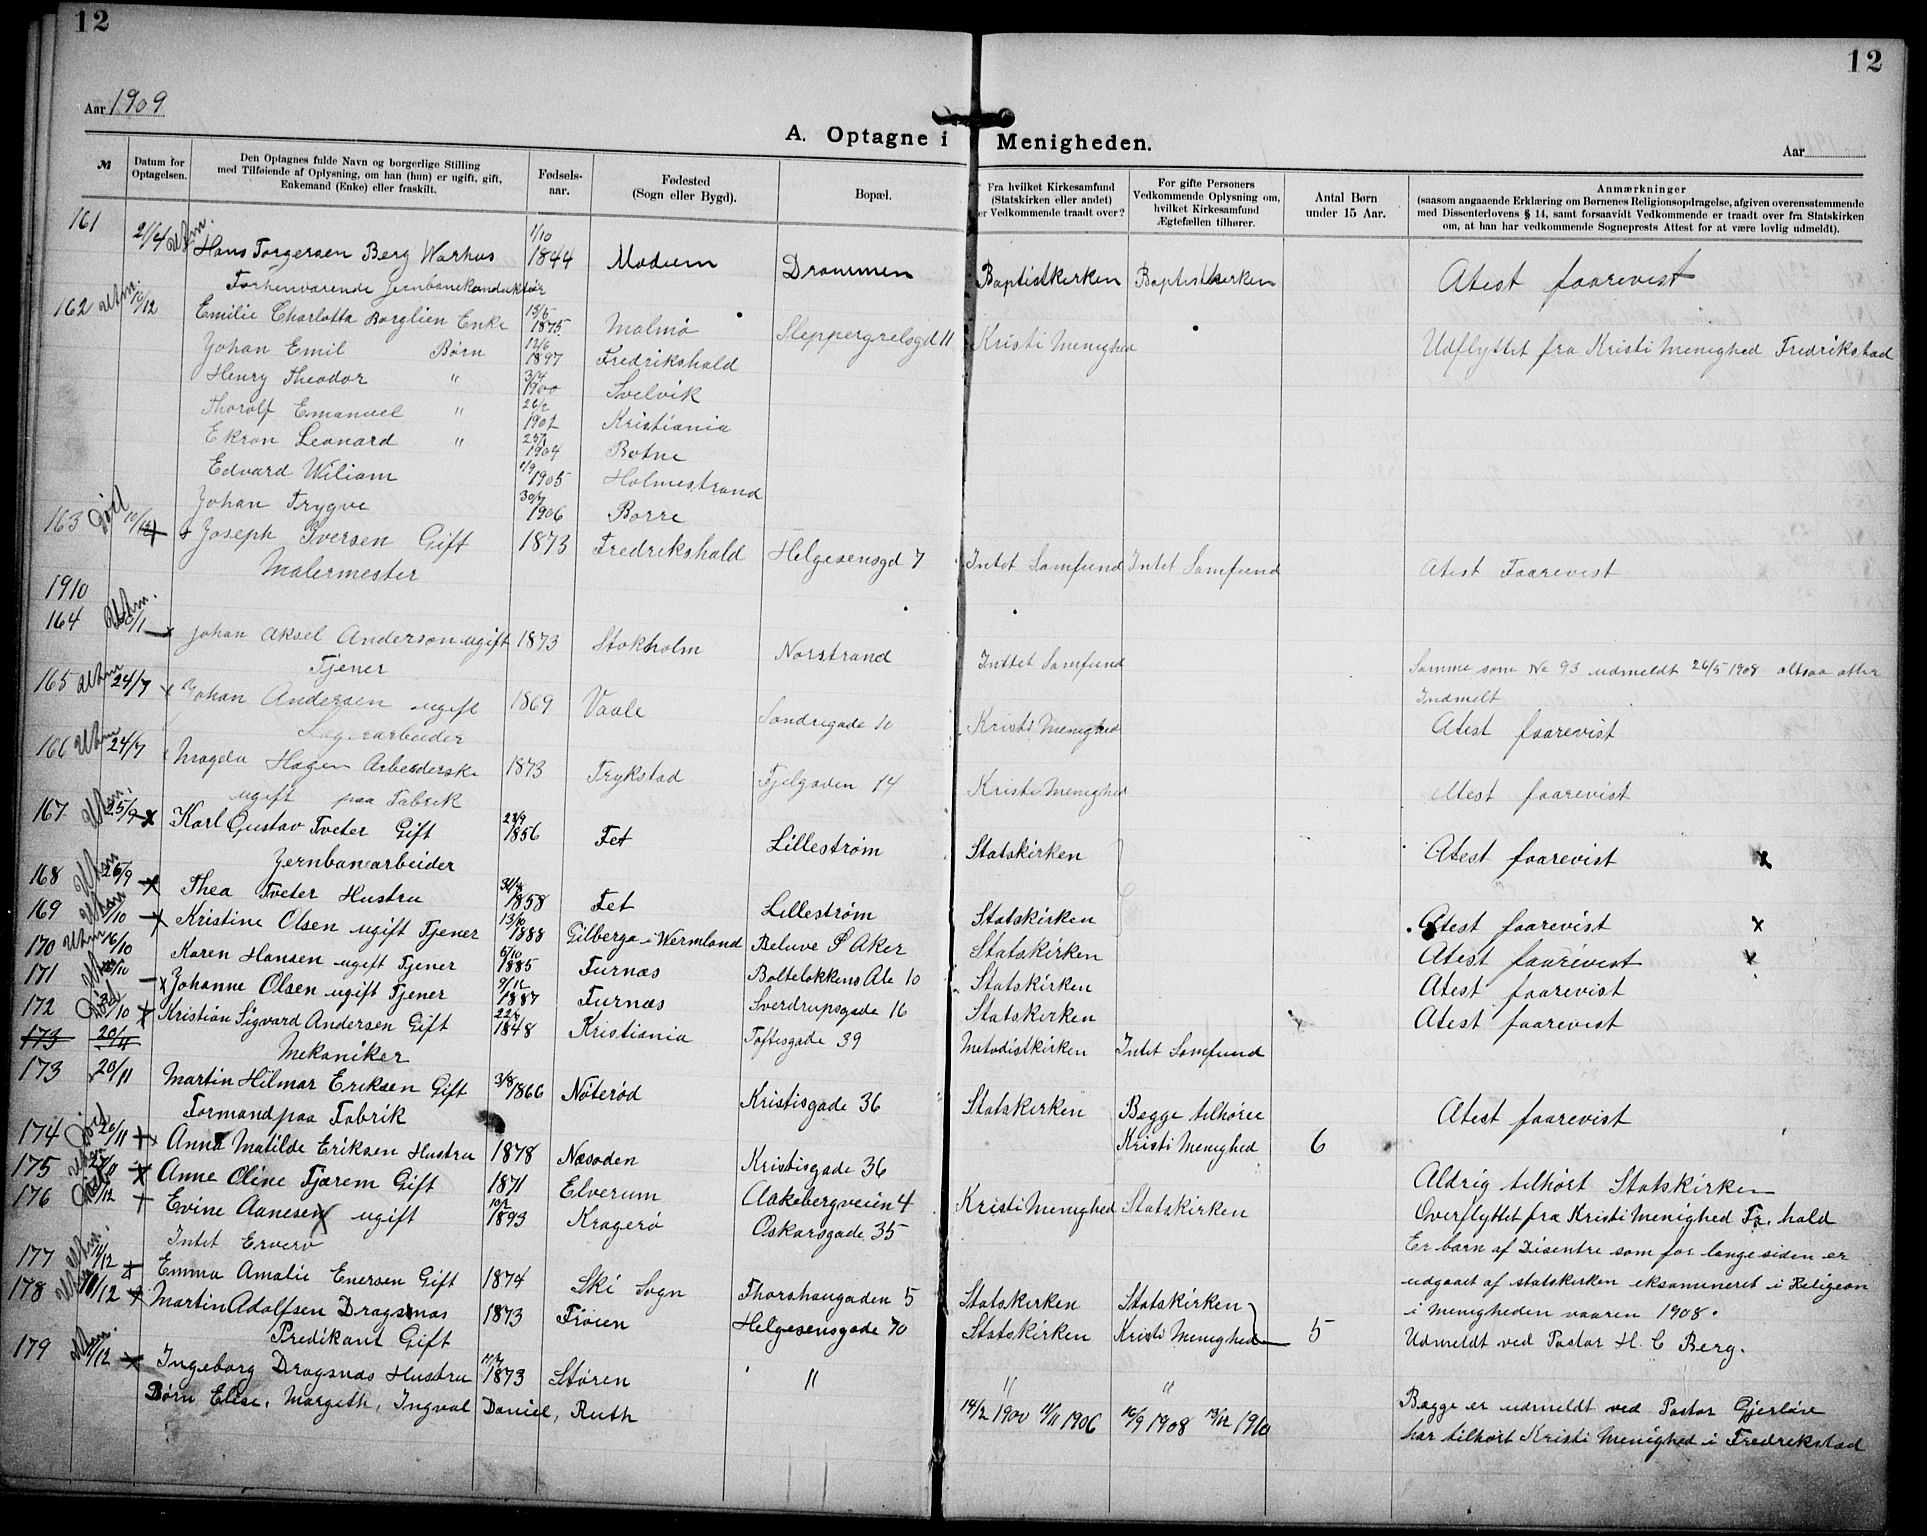 12
12
Aar 1909
A. Optagne i Menigheden.
Aar
№
Datum for Optagelsen.
Den Optagnes fulde Navn og borgerlige Stilling
med Tilføiende af Oplysning, om han (hun) er ugift, gift,
Enkemand (Enke) eller fraskilt.
Fødsels-
aar.
Fødested
(Sogn eller Bygd).
Bopæl.
Fra hvilket Kirkesamfund
(Statskirken eller andet)
er Vedkommende traadt over?
For gifte Personers
Vedkommende Oplysning om,
hvilket Kirkesamfund
Ægtefællen tilhører.
Antal Børn
under 15 Aar.
Anmærkninger
(saasom angaaende Erklæring om Børnenes Religionsopdragelse, afgiven overensstemmende
med Dissenterlovens § 14, samt forsaavidt Vedkommende er traadt over fra Statskirken
om, at han har vedkommende Sogneprests Attest for at være lovlig udmeldt).
161 Utm. Hans Torgersen Berg Warhus 1/10 1844 Modum Drammen Baptistkirken Baptistkirken Atest faarevist
Forhenværende Jernbanekonduktør
162 Utm. /12 Emilie Charlotta Borglien Enke 1875 Malmø Sleppergrelsgd 11 Kristi Menighed Udflyttet fra Kristi Menighed Fredrikstad
Johan Emil Børn 12/6 1897 Fredrikshald
Henry Theodor " 1900 Svelvik
Thorolf Emanuel " 1902 Kristiania
Ekron Leonard " 1904 Botne
Edvard Wiliam 1/9 1905 Holmestrand
Johan Trygve 1906 Borre
163 Død Joseph Iversen Gift 1873 Fredrikshald Helgesensgd 7 Intet Samfund Intet Samfund Atest Faarevist
Malermester
1910
164 Utm. Johan Aksel Anderson ugift 1873 Stokholm Norstrand Inttet Samfund Samme som No 93 udmeldt 26/5 1908 altsaa atter
Tjener Indmelt
165 Utm 24/7 Johan Andersen ugift 1869 Vaale Sandrigade 10 Kristi Menighed Atest faarevist
Lagerarbeider
166 Utm 24/7 Magda Hagen Arbeiderske 1873 Trykstad Fjelgaden 14 Kristi Menighed Atest faarevist
ugift paa Fabrik
167 Utm. 25/9 x Karl Gustav Tveter Gift 1856 Fet Lillestrøm Statskirken Atest faarevist x
Jernbanearbeider
168 Utm 25/9 x Thea Tveter Hustru 1858 Fet Lillestrøm Statskirken Atest faarevist x
169 Utm /10 x Kristine Olsen ugift Tjener 13/10 1888 Gilberga i Wermland Beluve P Aker Statskirken Atest faarevist x
170 Utm 16/10 Karen Hansen ugift Tjener 6/10 1885 Furnæs Boltelokkens Ale 10 Statskirken Atest faarevist
171 Utm /10 x Johanne Olsen ugift Tjener 9/12 1887 Furnæs Sverdrupsgade 16 Statskirken Atest faarevist
172 Død /10 x Kristian Sigvard Andersen Gift 1848 Kristiania Toftesgade 39 Metodistkirken Intet Samfund
173 20/11 Mekaniker
173 20/11 Martin Hilmar Eriksen Gift 3/8 1866 Nøterød Kristisgade 36 Statskirken Begge tilhører Atest faarevist
Formand paa Fabrik Kristi Menighed 6
174 Død 20/11 Anna Matilde Eriksen Hustru 1878 Næsoden Kristisgade 36 Aldrig tilhørt Statskirken
175 Utm x Anne Oline Tjærem Gift 1871 Elverum Aakebergveien 4 Kristi Menighed Statskirken Overflyttet fra Kristi Menighed Fr. hald
176 /12 Evine Aanesen ugift 1893 Kragerø Oskarsgade 35 Er barn af Disentre som for lange siden er
Intet Erverv udgaaet af statskirken eksamineret i Religeon
177 Utm. /12 Emma Amalie Enersen Gift 1874 Ski Sogn Thorshaugaden 5 Statskirken Statskirken i Menigheden vaaren 1908.
178 Utm /12 Martin Adolfsen Dragsnæs 1873 Frøien Helgesensgade 70 Statskirken Kristi Menighed 5 Udmeldt ved Pastor H. C Berg.
Predikant Gift
179 Utm. /12 x Ingeborg Dragsnæs Hustru 1873 Støren " " " Begge er udmeldt ved Pastor Gjerløw
Børn Elise, Margeth, Ingval Daniel, Ruth 14/2 1900 11/11 1906 16/9 1908 13/12 1910 har tilhørt Kristi Menighed i Fredrekstad